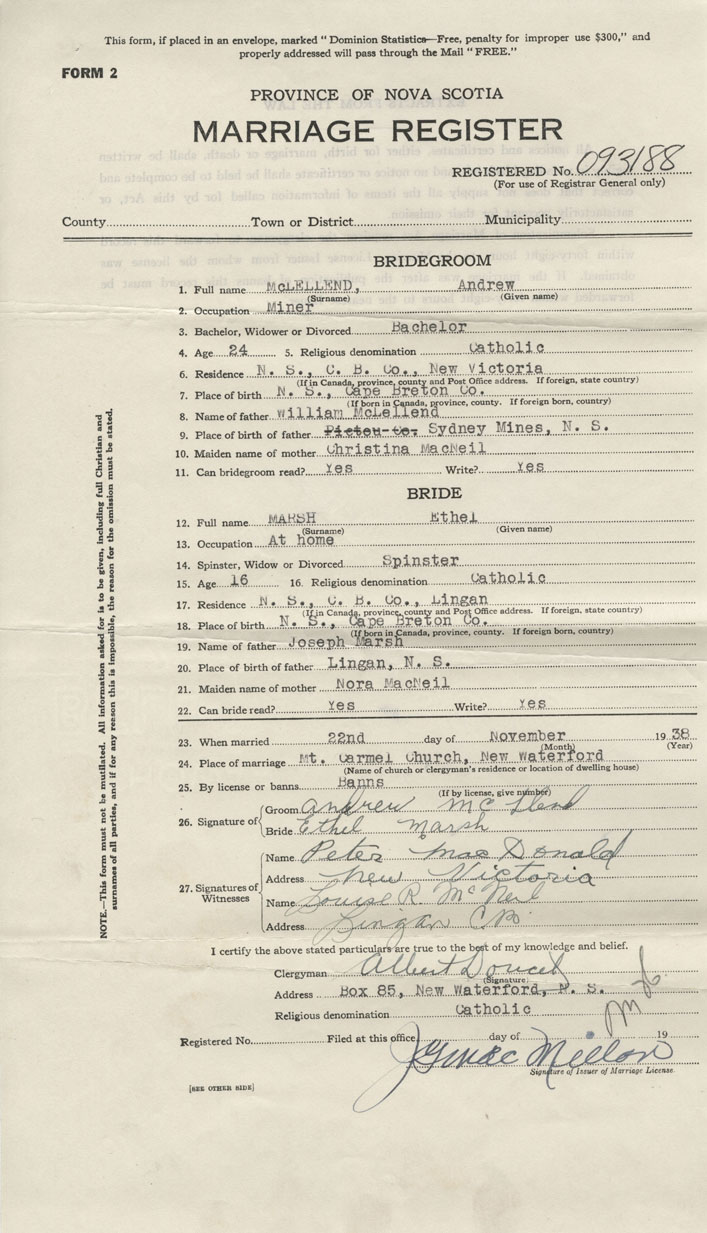 This form, if placed in an envelope, marked "Dominion Statistics—Free, penalty for improper use $300," and
properly addressed will pass through the Mail "FREE."
FORM 2
PROVINCE OF NOVA SCOTIA
MARRIAGE REGISTER
REGISTERED No. 093188
(For use of Registrar General only)
County Town or District Municipality
BRIDEGROOM
1. Full name McLELLEND, Andrew
(Surname) (Given name)
2. Occupation Miner
3. Bachelor, Widower or Divorced Bachelor
4. Age 24 5. Religious denomination Catholic
6. Residence N. S., C. B. Co., New Victoria
(If in Canada, province, county and Post Office address. If foreign, state country)
7. Place of birth N. S., Cape Breton Co.
(If born in Canada, province, county. If foreign born, country)
8. Name of father William McLellend
9. Place of birth of father Pictou Co. Sydney Mines, N. S.
10. Maiden name of mother Christina MacNeil
11. Can bridegroom read? Yes Write? Yes
BRIDE
12. Full name MARSH Ethel
(Surname) (Given name)
13. Occupation At home
14. Spinster, Widow or Divorced Spinster
15. Age 16 16. Religious denomination Catholic
17. Residence N. S., C. B. Co., Lingan
(If in Canada, province, county and Post Office address. If foreign, state country)
18. Place of birth N. S., Cape Breton Co.
(If born in Canada, province, county. If foreign born, country)
19. Name of father Joseph Marsh
20. Place of birth of father Lingan, N. S.
21. Maiden name of mother Nora MacNeil
22. Can bride read? Yes Write? Yes
23. When married 22nd day of November 19 38
(Month) (Year)
24. Place of marriage Mt. Carmel Church, New Waterford
(Name of church or clergyman's residence or location of dwelling house)
25. By license or banns Banns
(If by license, give number)
26. Signature of Groom Andrew Mc Llend
Bride Ethel Marsh
27. Signatures of Witnesses Name Peter Mac Donald
Address New Victoria
Name Louise R. McNeil
Address Lingan C.B.
I certify the above stated particulars are true to the best of my knowledge and belief.
Clergyman Albert Doucet
(Signature)
Address Box 85, New Waterford, N. S.
Religious denomination Catholic
Registered No. Filed at this office day of 19
Signature of Issuer of Marriage License
[SEE OTHER SIDE]
NOTE.—This form must not be mutilated. All information asked for is to be given, including full Christian and
surnames of all parties, and if for any reason this is impossible, the reason for the omission must be stated.